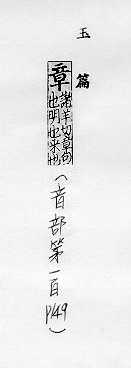 玉篇
章 諸羊切章句
也明也采也
(音部第一百 P149)